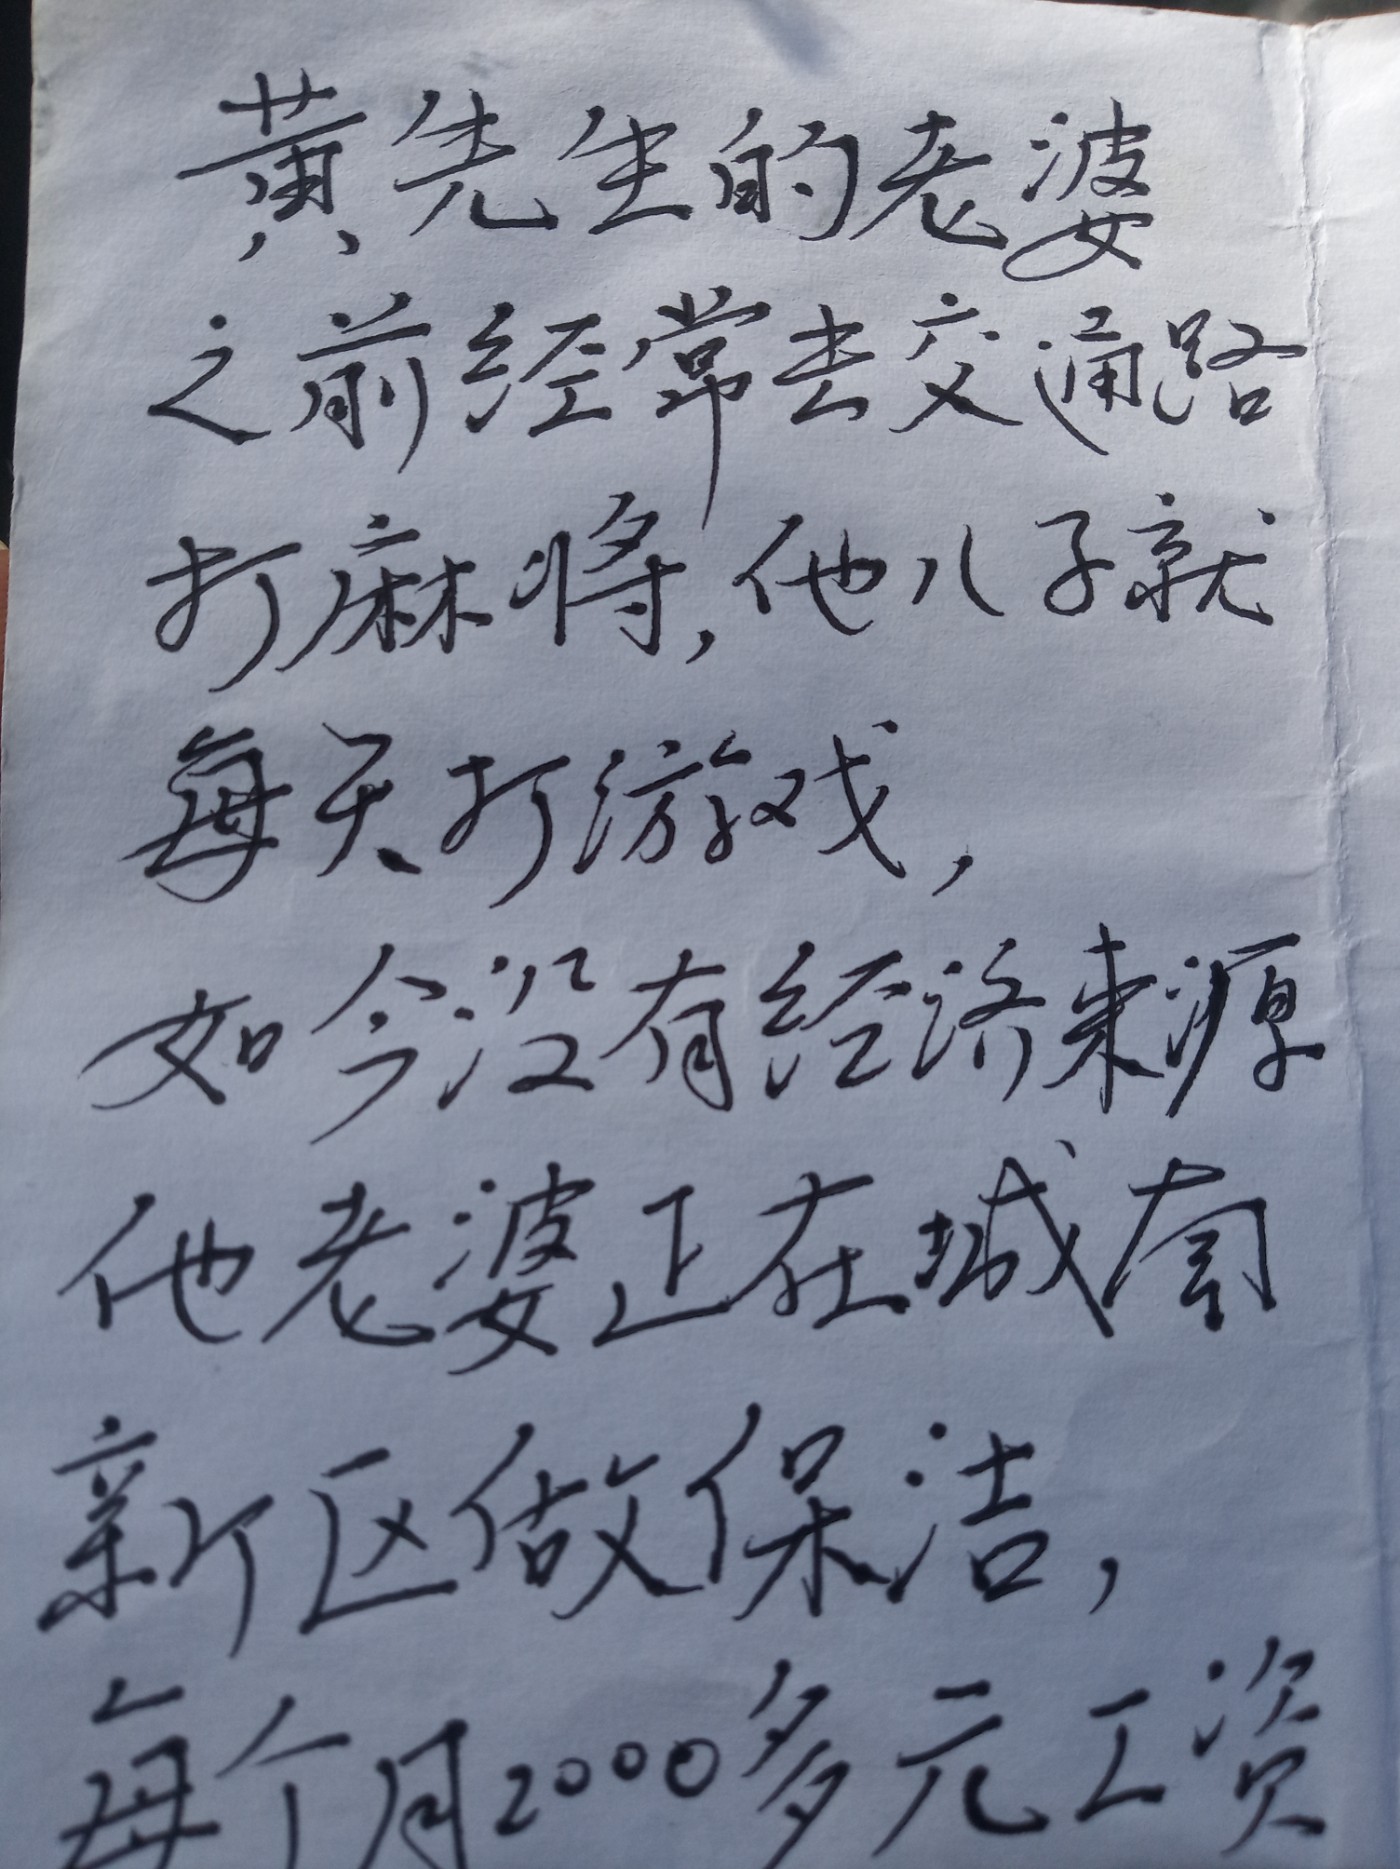 黄先生的老婆
之前经常去交通路
打麻将,他儿子就
每天打游戏,
如今没有经济来源
他老婆正在城南
新区做保洁,
每个月2000多元工资